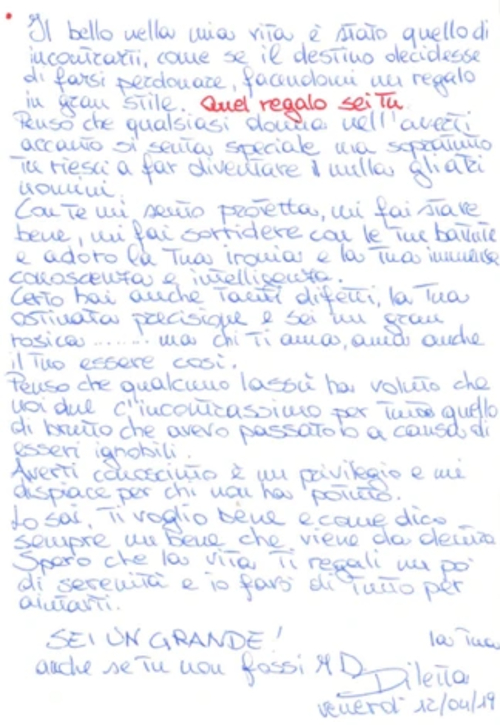 Il bello nella mia vita è stato quello di
incontrarti, come se il destino decidesse
di farsi perdonare, facendomi un regalo
in gran stile. Quel regalo sei tu
Penso che qualsiasi donna nell'averti
accanto si senta speciale ma soprattutto
tu riesci a far diventare nulla gli altri
uomini.
Con te mi sento protetta, mi fai stare
bene, mi fai sorridere con le tue battute
e adoro la tua ironia e la tua immensa
conoscenza e intelligenza.
Certo hai anche tanti difetti, la tua
ostinata precisione e sei un gran
rosica ........ ma chi ti ama, ama anche
il tuo essere così.
Penso che qualcuno lassù ha voluto che
noi due c'incontrassimo per quello
di brutto che avevo passato a causa di
esseri ignobili.
Averti conosciuto è un privilegio e mi
dispiace per chi non ha potuto.
Lo sai, ti voglio bene e come dico
sempre un bene che viene da dentro
Spero che la vita ti regali un po'
di serenità e io farò di tutto per
aiutarti.
SEI UN GRANDE!
anche se tu non fossi MD
la tua
Diletta
venerdì 12/04/19